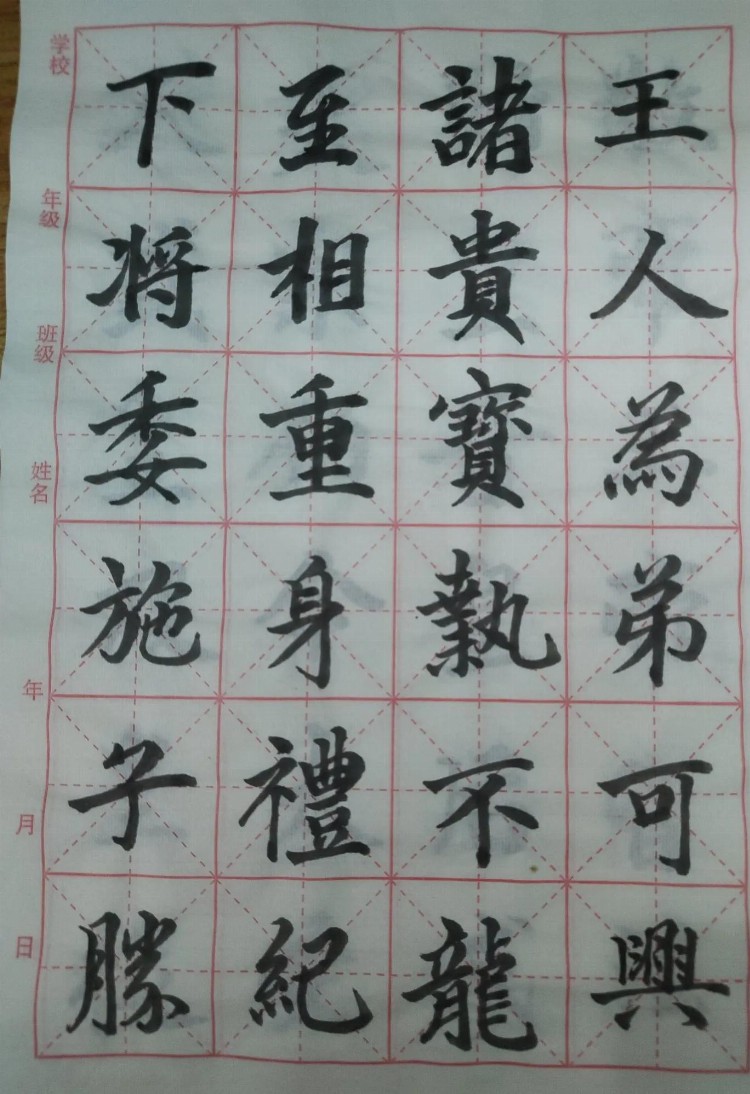 王人為弟可興
諸貴寶執不龍
至相重身禮紀
下将委施子勝
学校
年级
班级
姓名
年
月
日